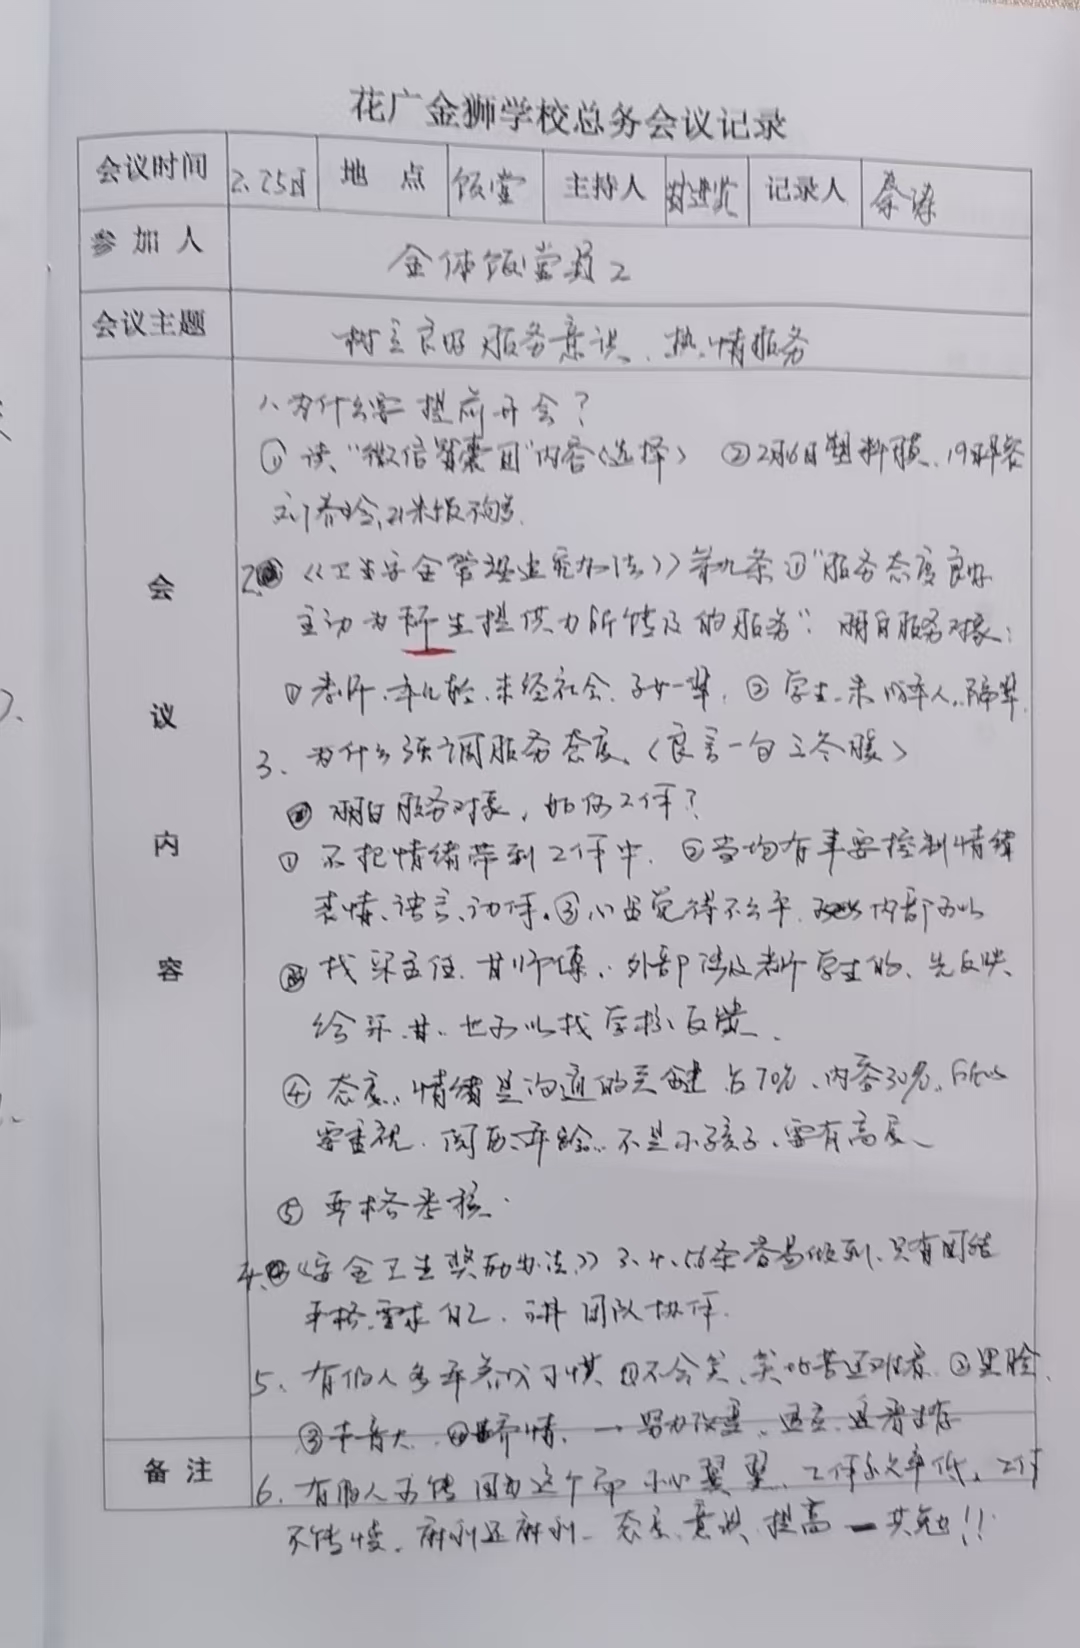 花广金狮学校总务会议记录
会议时间 2.25日 地点 饭堂 主持人 记录人
参加人 全体饭堂员工
会议主题 树立良好服务意识、热情服务
会议内容
1、为什么要提前开会?
① 读“微信智囊团”内容(选择) ② 塑料膜、19
米饭不够
2、《卫生安全管理追究办法》第九条①“服务态度良好
主动为师生提供力所能及的服务”: 明白服务对象:
① 老师、年纪轻、未经社会、子女一辈、② 学生、未成年人、隔辈
3、为什么强调服务态度、(良言一句三冬暖)
明白服务对象,如何工作?
① 不把情绪带到工作中、②当均有事要控制情绪
表情、语言、动作。③心出觉得不公平、内部可以
找采主任、甘师傅、外部涉及老师学生的、先反映
给采、甘、也可以找学校反馈、
④ 态度、情绪是沟通的关键 占70%、内容30%、所以
要重视、阅历、年龄、不是小孩子、要有高度、
⑤ 严格考核.
4、《安全卫生奖励办法》3、4、56条容易做到、只有团结
严格要求自己、讲团队协作.
5、有的人多年养成习惯 ①不会笑、笑比苦还难看 ②黑脸、
③声音大、④矫情、→ 努力改变、
备注
6、有的人可能因为这个而小心翼翼、工作效率低、工作
不能慢、麻利还麻利、态度、意识、提高 一 共勉!!